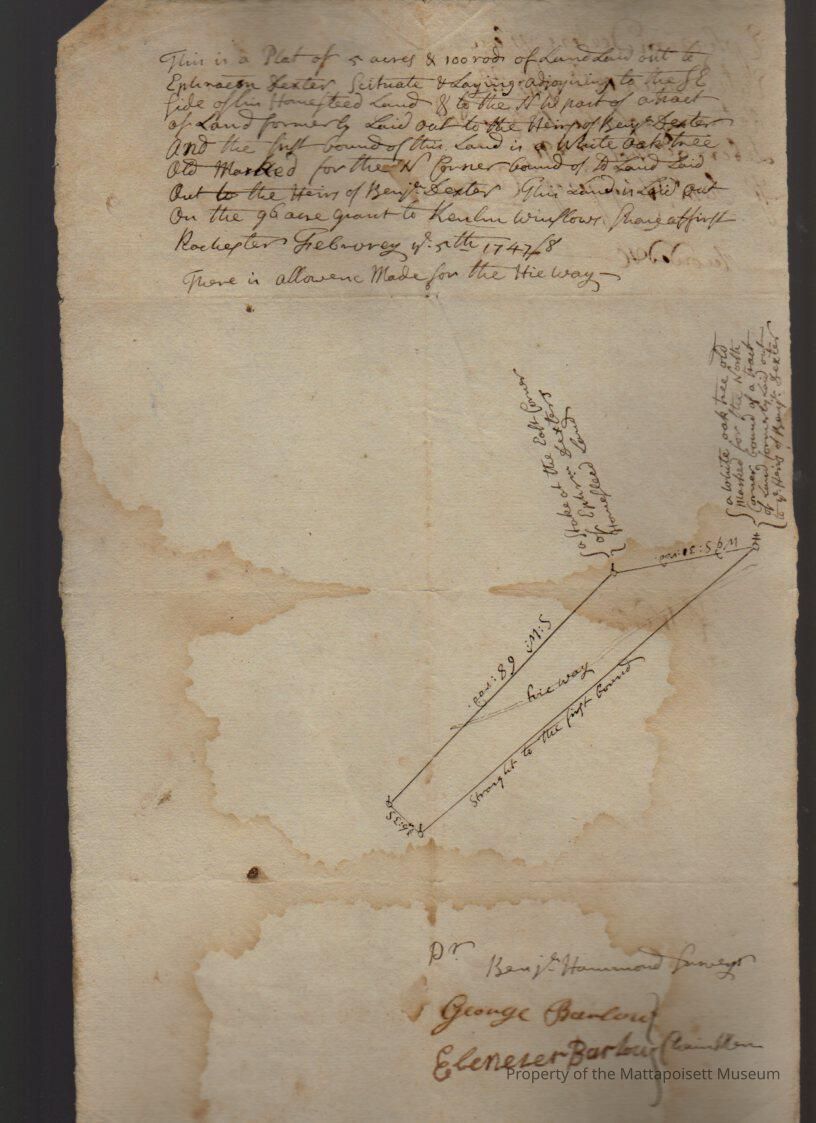 This is a Plat of 5 acres & 100 rods of Land Laid out to
Ephraem Dexter Scituate & Laying adjoyning to the SE
side of his Homesteed Land & to the N W part of a tract
of Land formerly Laid out to the Heirs of Benjn Dexter
And the first bound of this Land is a White oak tree
Old Marked for the N Corner bound of sd Land Laid
Out to the Heirs of Benjn Dexter This Land is Laid out
On the 96 acre grant to Kenelm Winslows Share at first
Rochester Febrorey ye 5th 1747/8
There is allowenc Made for the Hie way
a white oak tree old
Marked for the North
corner bound of a tract
of Land formerly Laid out
to ye Heirs of Benjn Dexter
a Stake at the East Corner
of Ephrm Dexters
Homesteed Land
W 9 S: 31: rod
S: W: 68: rod
hie way
Straight to the first bound
Pr
Benjn Hammond Surveyr
George Barlow
Ebenezer Barlow
Chainmen
Property of the Mattapoisett Museum